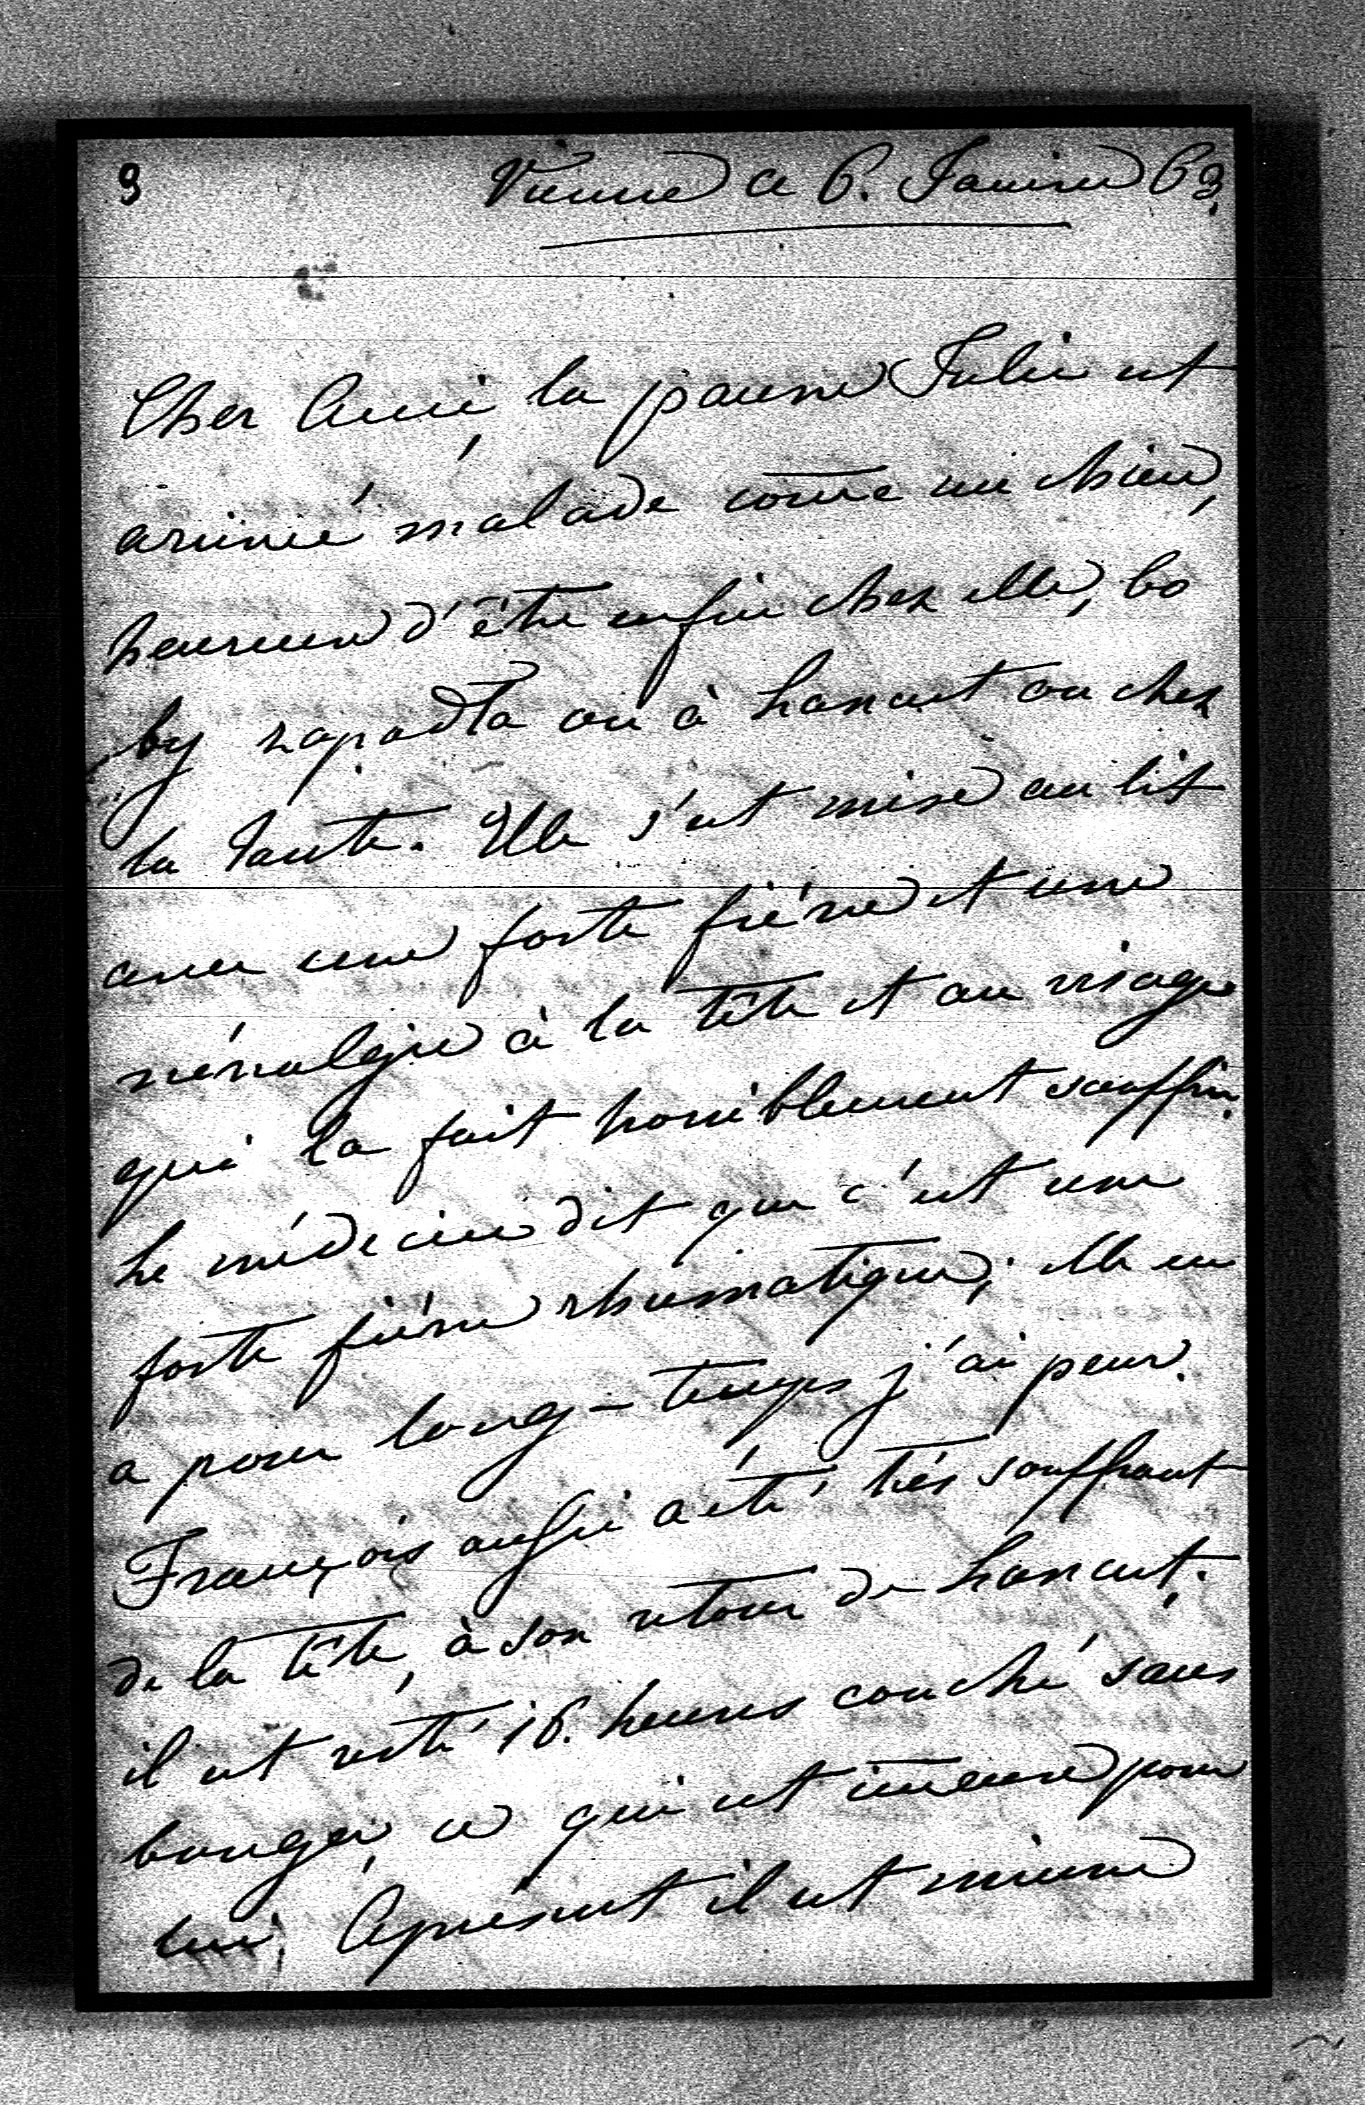 9
Vienne ce 6. Janvier 63.
Cher Ami, la pauvre Julie est
arrivée malade comme un chien,
heureuse d'être enfin chez elle, bo
by zapadła ou à Lancut ou chez
la Tante. Elle s'est mise au lit
avec une forte fiévre et une
névralgie à la tête et au visage
qui la fait horriblement souffrir.
Le médecin dit que c'est une
forte fiévre rhumatique; elle en
a pour long-temps j'ai peur.
François aussi a été très souffrant
de la tête, à son retour de Lancut.
il est resté 16. heures couché sans
bouger, ce qui est immense pour
lui. Aprésent il est mieux